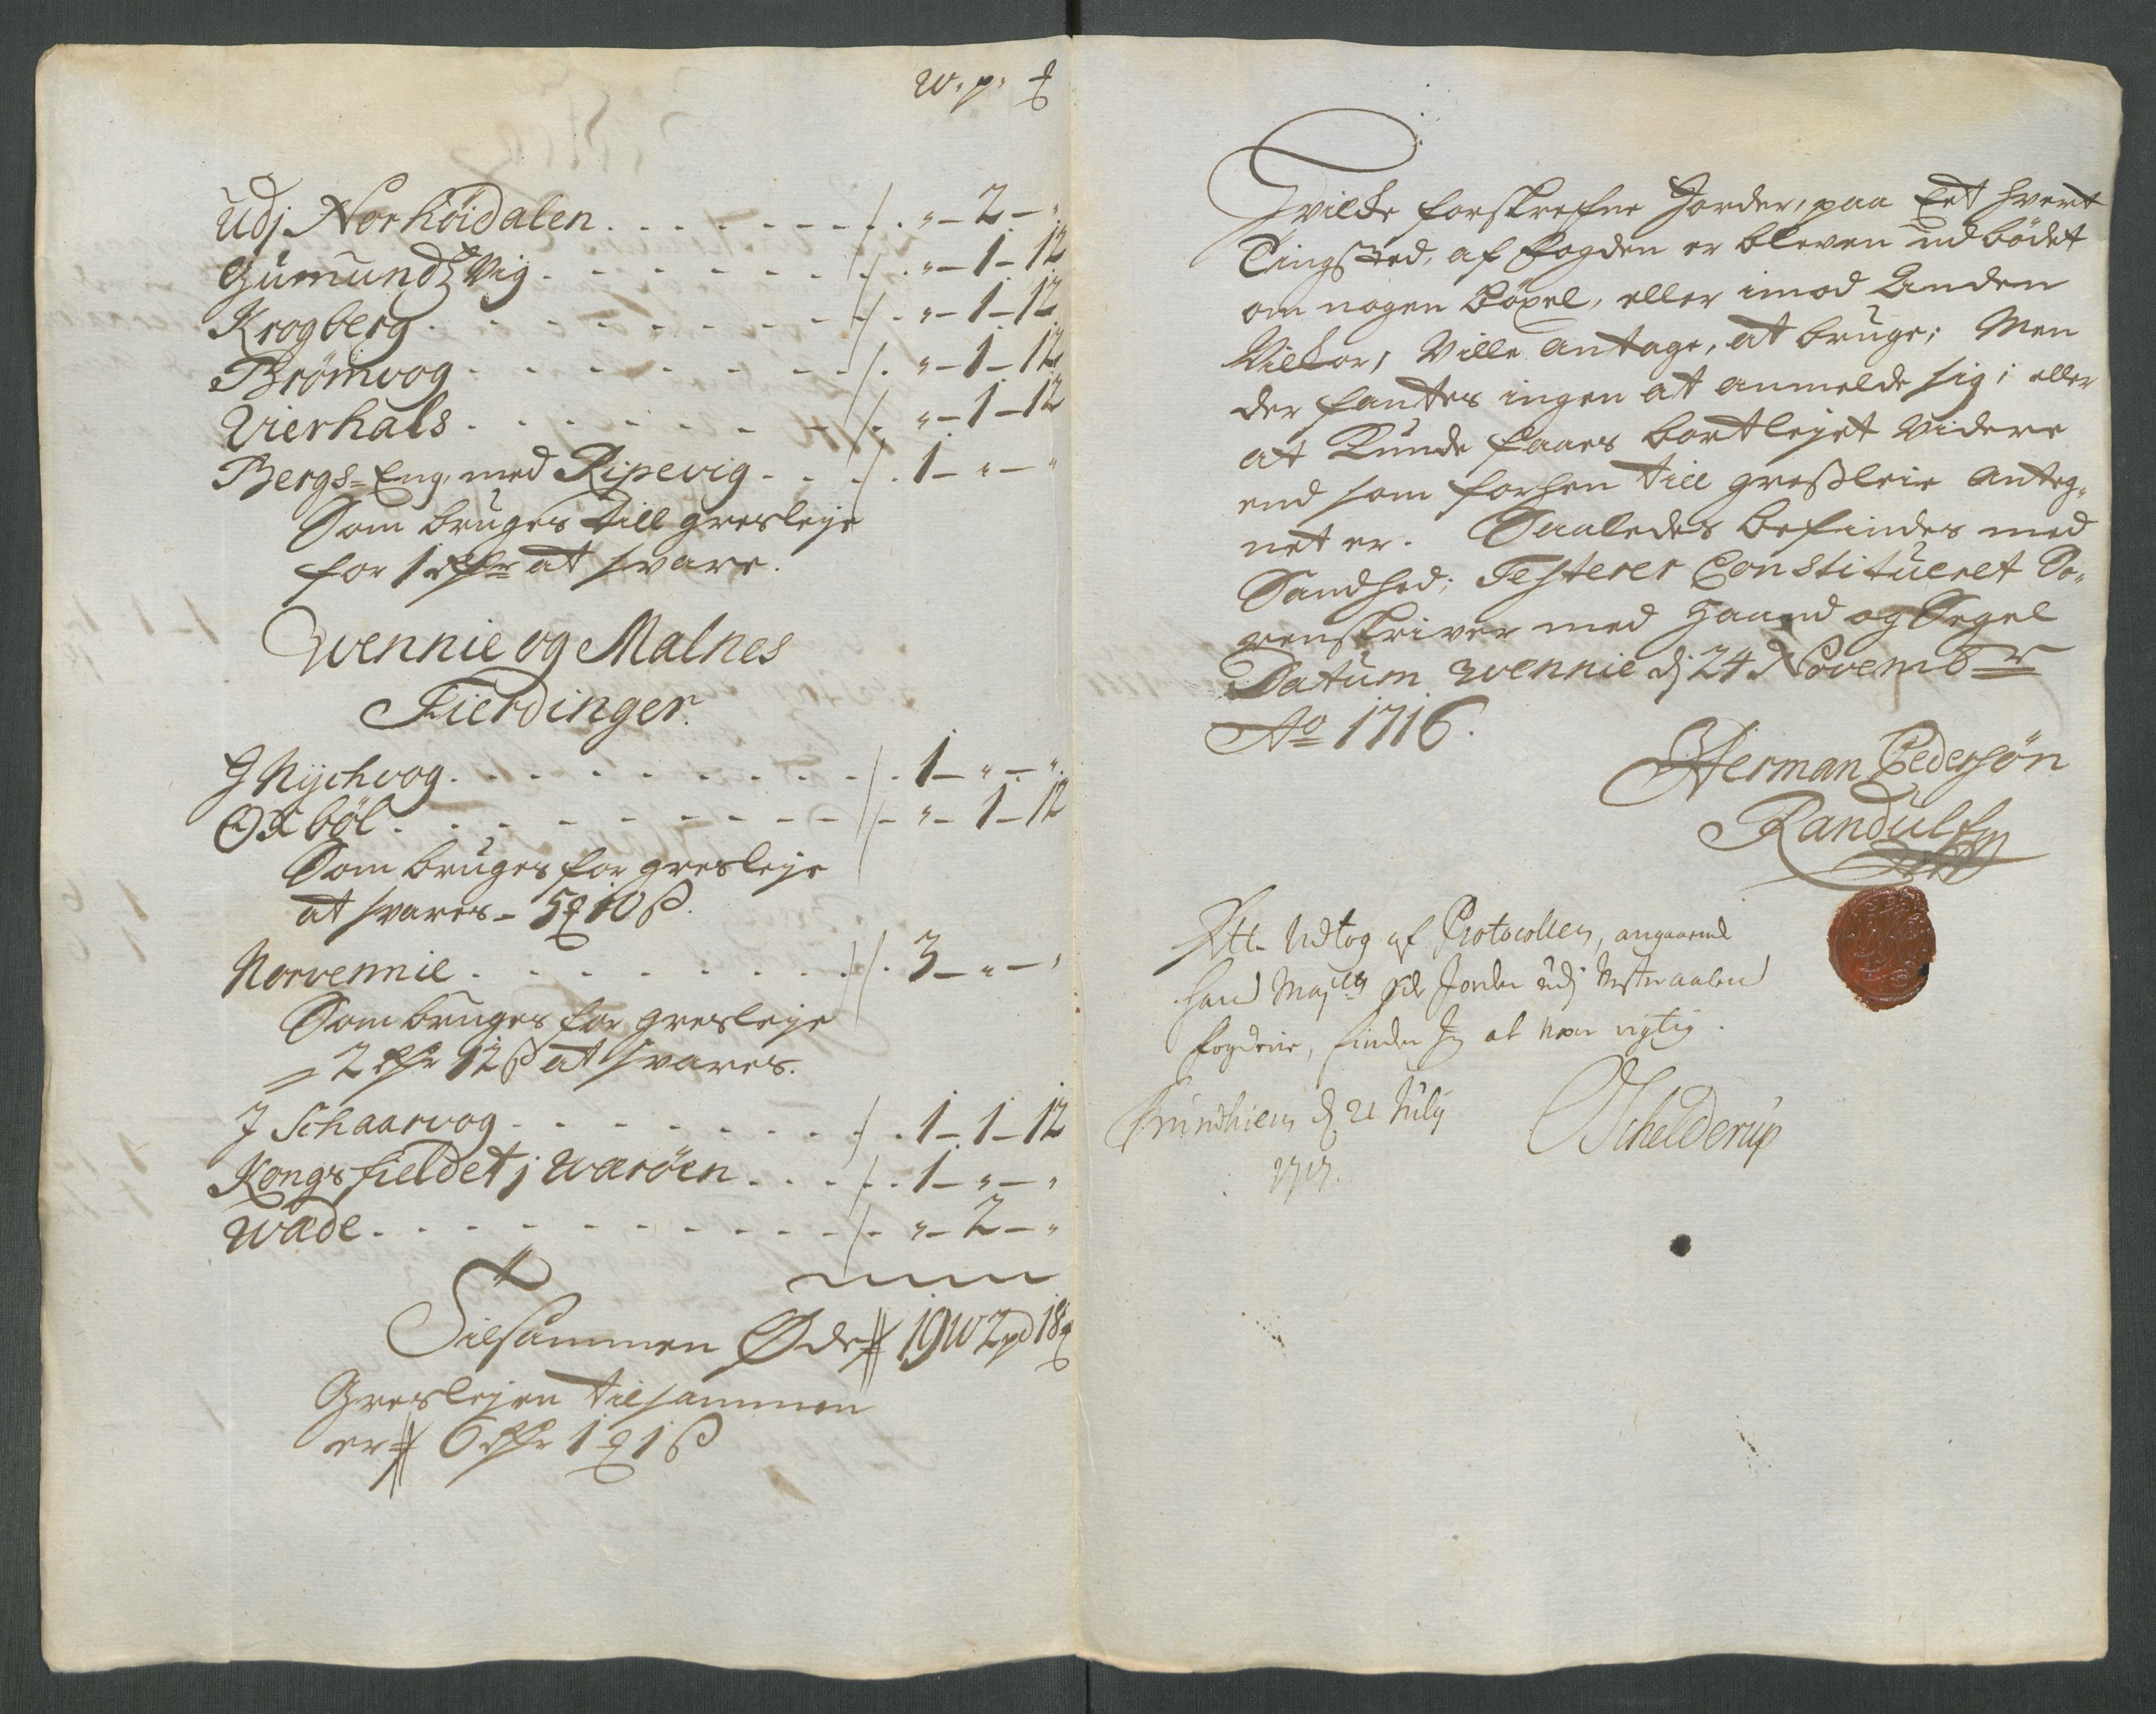 W. p. ℔
Udj Norhöidalen . . . . . . . . /. „ – 2 – „
Gumundz Vig . . . . . . . /. „ – 1 – 12
Krogberg . . . . . . . . /. „ – 1 – 12
Brömvog . . . . . . . . /. „ – 1 – 12
Vierhals . . . . . . . . /. „ – 1 – 12
Bergs=Eng, med Ripevig . . . /. 1 – „ – „
Som bruges till gresleje
for 1 rdlr at svare.
Wennie og Malnes
Fierdinger.
J Nychvog . . . . . . . . . /. 1 – „ – „
Oxböl . . . . . . . . . /. „ – 1 – 12
Som bruges for gresleje
at svares – 5 ß 10 ß.
Norvennie . . . . . . . . /. 3 – „ – „
Som bruges for gresleje
= 2 rdlr 12 ß at svares.
J Schaarvog . . . . . . . . /. 1 – 1 – 12
Kongsfieldet j Waröen . . . . /. 1 – „ – „
Wæde . . . . . . . . . . /. „ – 2 – „
Tilsammen Øde 19 W 2 pd 18 ℔
Greslejen tilsammen
er 6 rdlr 1 ß 1 ß
Hvilcke forskrefne Jorder, paa Eet hvert
Tingsted, af fogden er bleven udbödet
om nogen Böxel, eller imod Anden
Vilkor, Ville antage, at bruge; Men
der fantes ingen at anmelde sig, eller
at Kunde faaes bortlejet videre
end som forhen till gresleie anteg„
net er. Saaledes befindes med
Sandhed; Testerer Constitueret So„
renskriver med Haand og Segel
Datum Wennie dj 24 Novembr
Ao 1716.
Herman Pedersön
Randulf
Att Udtog af Protocollen, angaaende
Hans Mayts øde Jorder udj Vesteraalens
fogderie, finder Jeg at være rigtig.
Trundhiem d. 21 July
1717.
OSchelderup